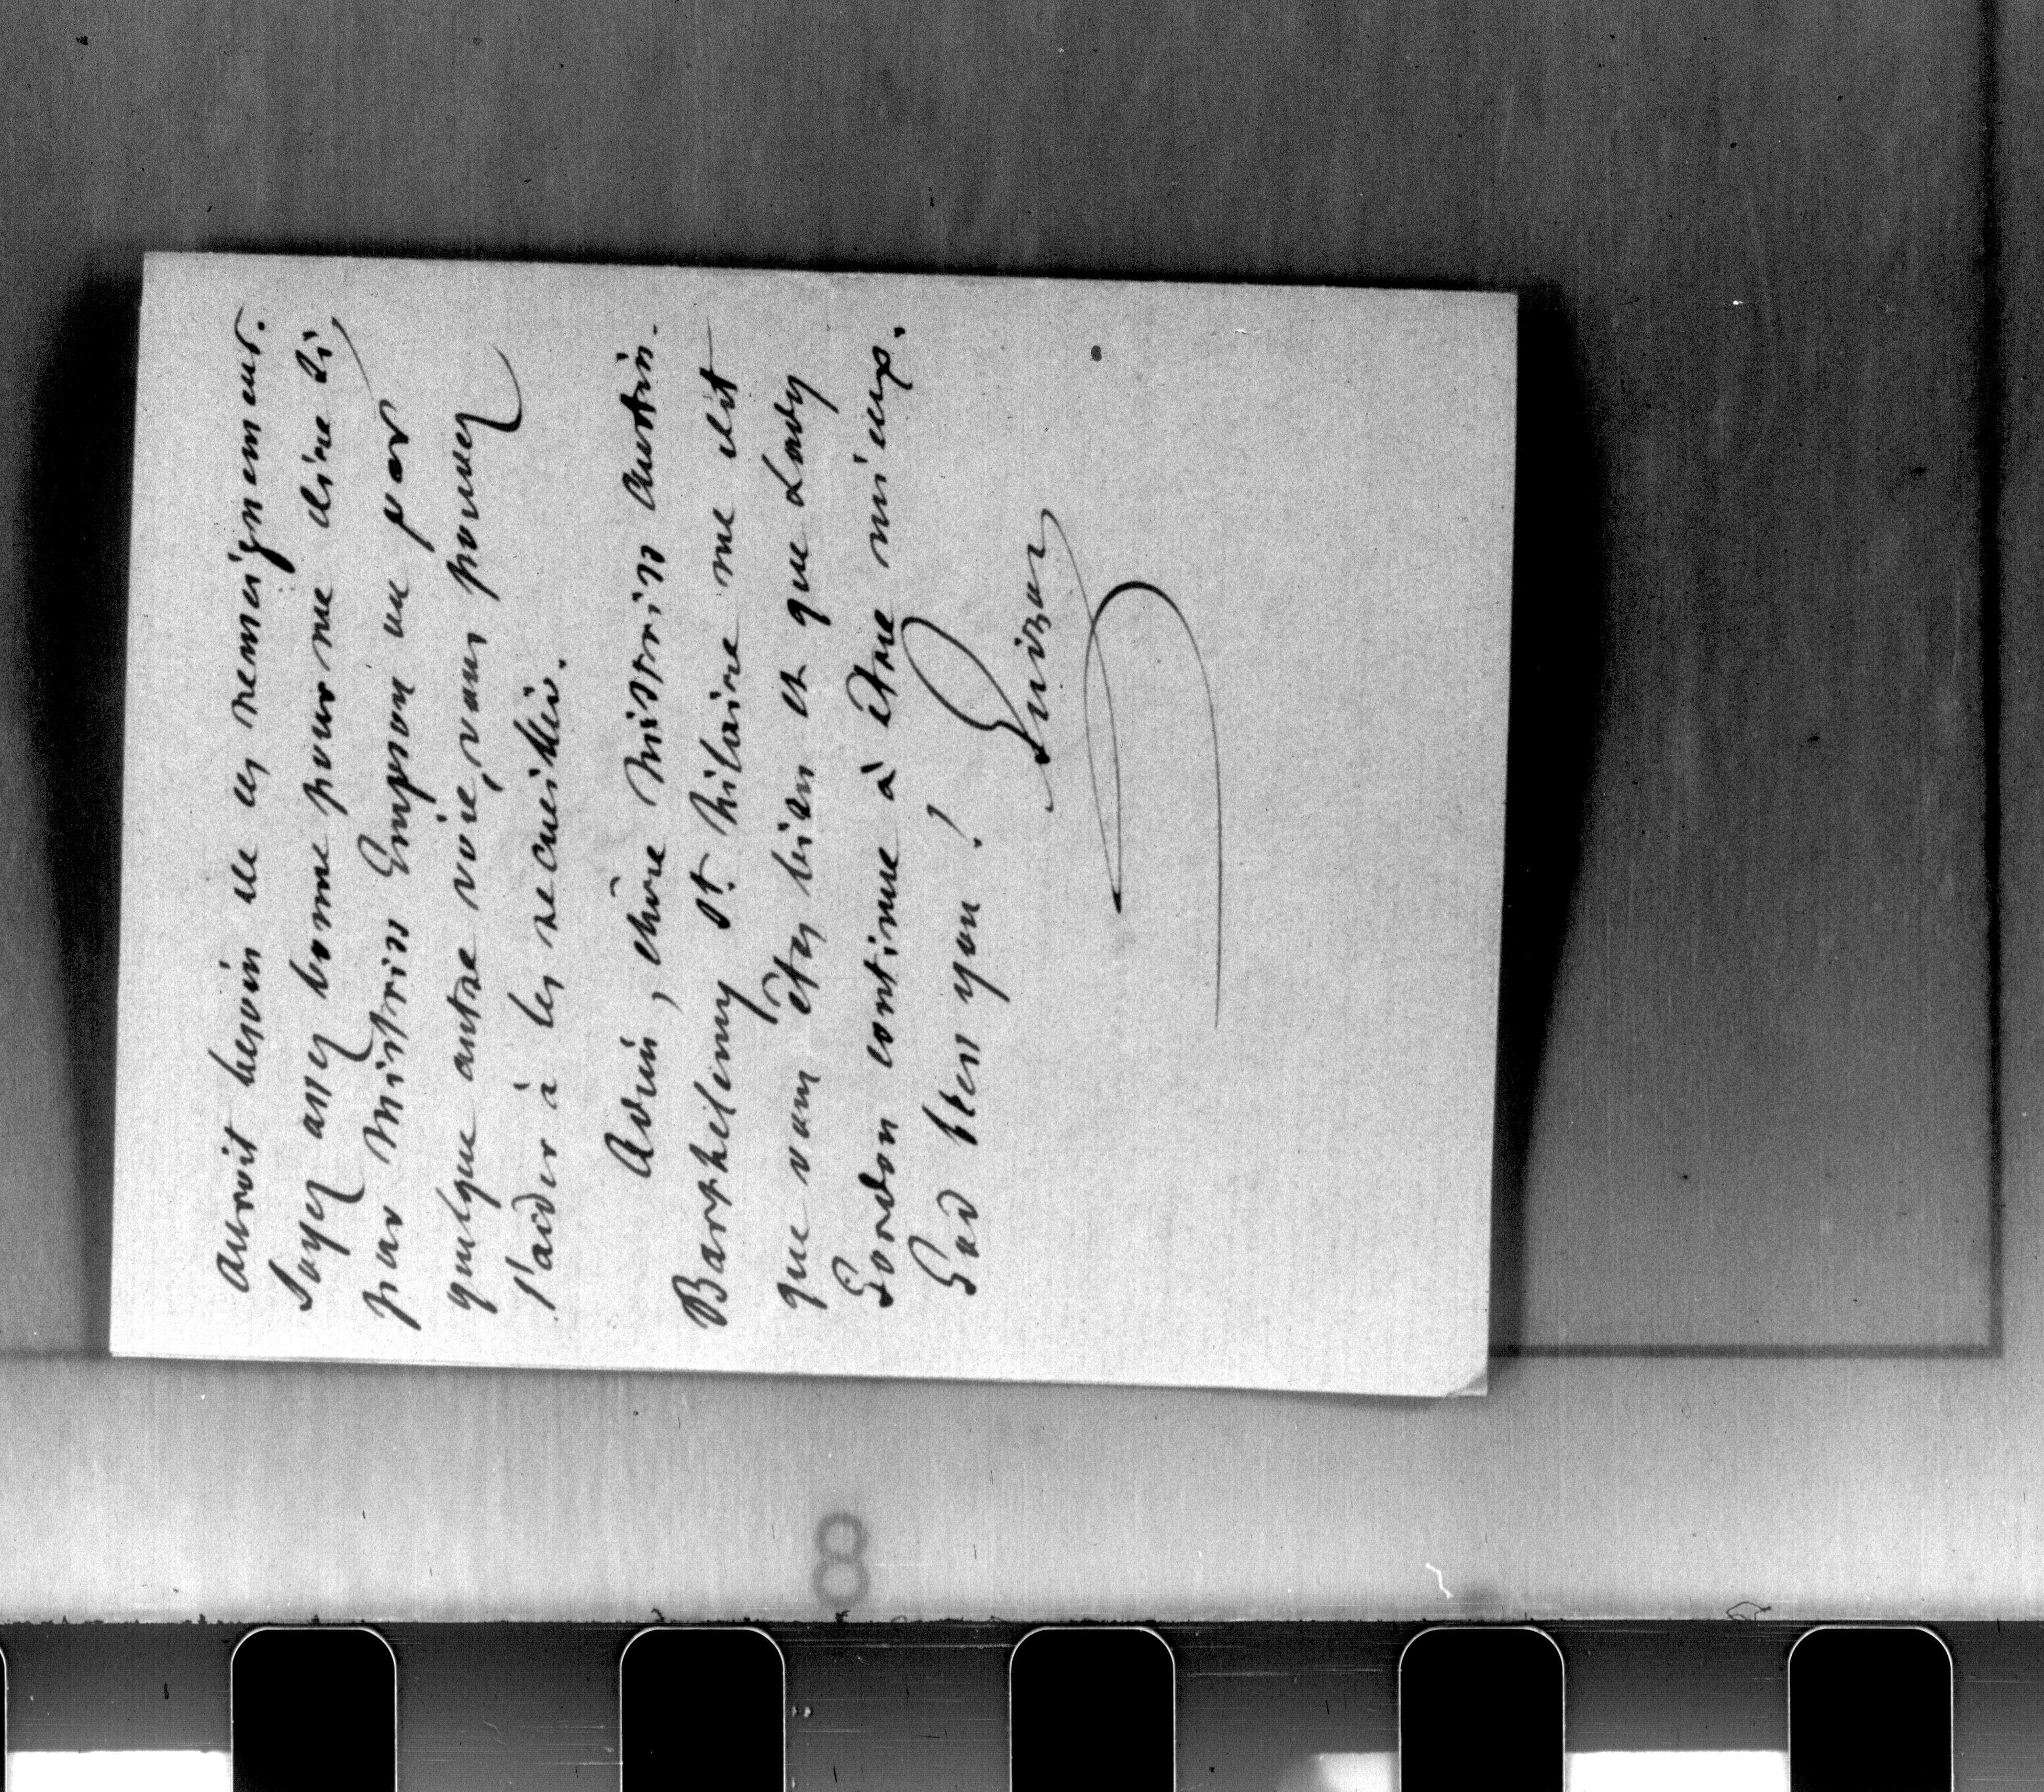 auroit besoin de ces renseignemens.
Soyez assez bonne pour me dire si,
par Mistriss Empson ou par
quelque autre voie, vous pouvez
l'aider à les recueillir.
Adieu, chère Mistriss Austin.
Barthelemy St. hilaire me dit
que vous êtes bien et que Lady
Gordon continue à être mieux.
God bless you !
Guizot